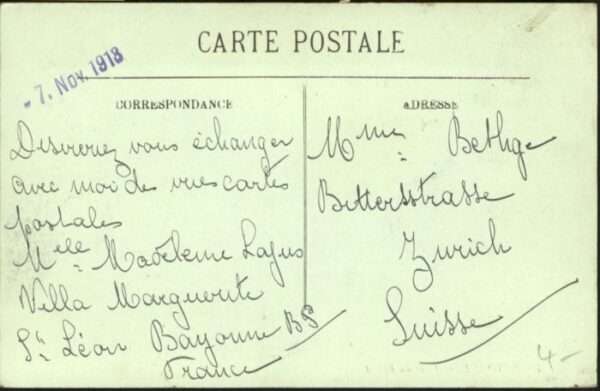 CARTE POSTALE
- 7. Nov. 1913
CORRESPONDANCE
Desireriez vous échanger
avec moi des vues cartes
postales
Mlle Madeleine Lafus
Villa Marguerite
St Léon Bayonne BP
France
ADRESSE
Mme Bethge
Bittersstrasse
Zurich
Suisse
4-